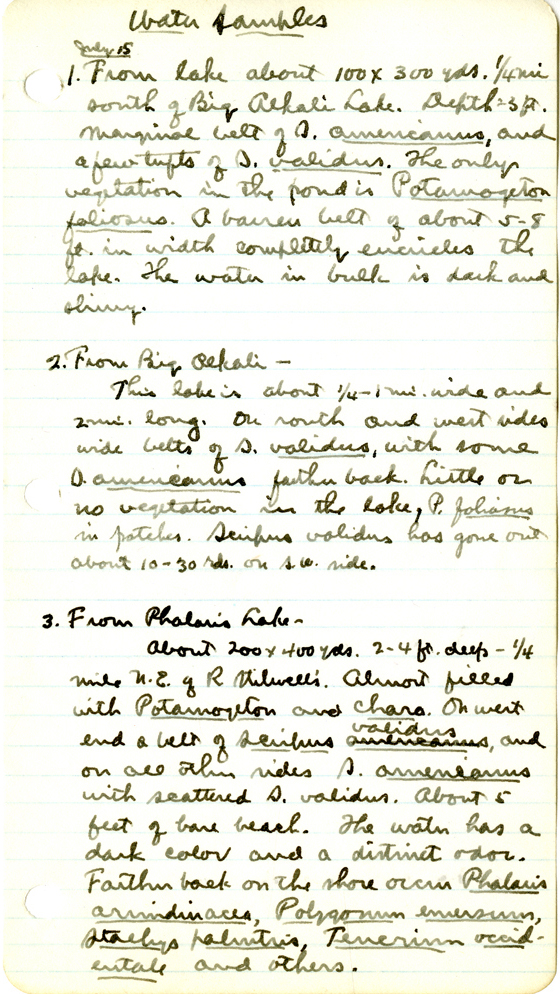 Water Samples
July 15
1. From lake about 100 x 300 yds. 1/4 mi
south of Big Alkali Lake. Depth = 3 ft.
Marginal belt of S. americanus, and
a few tufts of S. validus. The only
vegetation in the pond is Potamogeton
foliosus. A barren belt of about 5-8
ft. in width completely encircles the
lake. The water in bulk is dark and
shiny.
2. From Big Alkali -
This lake is about 1/4-1 mi. wide and
2 mi. long. On south and west sides
wide belts of S. validus, with some
S. americanus farther back. Little or
no vegetation in the lake, P. foliosus
in patches. Scirpus validus has gone out
about 10-30 rds. on s.w. side.
3. From Phalaris Lake -
About 200 x 400 yds. 2-4 ft. deep - 1/4
mile N.E. of R Stilwell's. Almost filled
with Potamogeton and chara. On west
validus
end a belt of Scirpus americanus, and
on all other sides S. americanus
with scattered S. validus. About 5
feet of bare beach. The water has a
dark color and a distinct odor.
Farther back on the shore occur Phalaris
arundinacea, Polygonum emersum,
Stachys palustris, Teucrium occid-
entale and others.